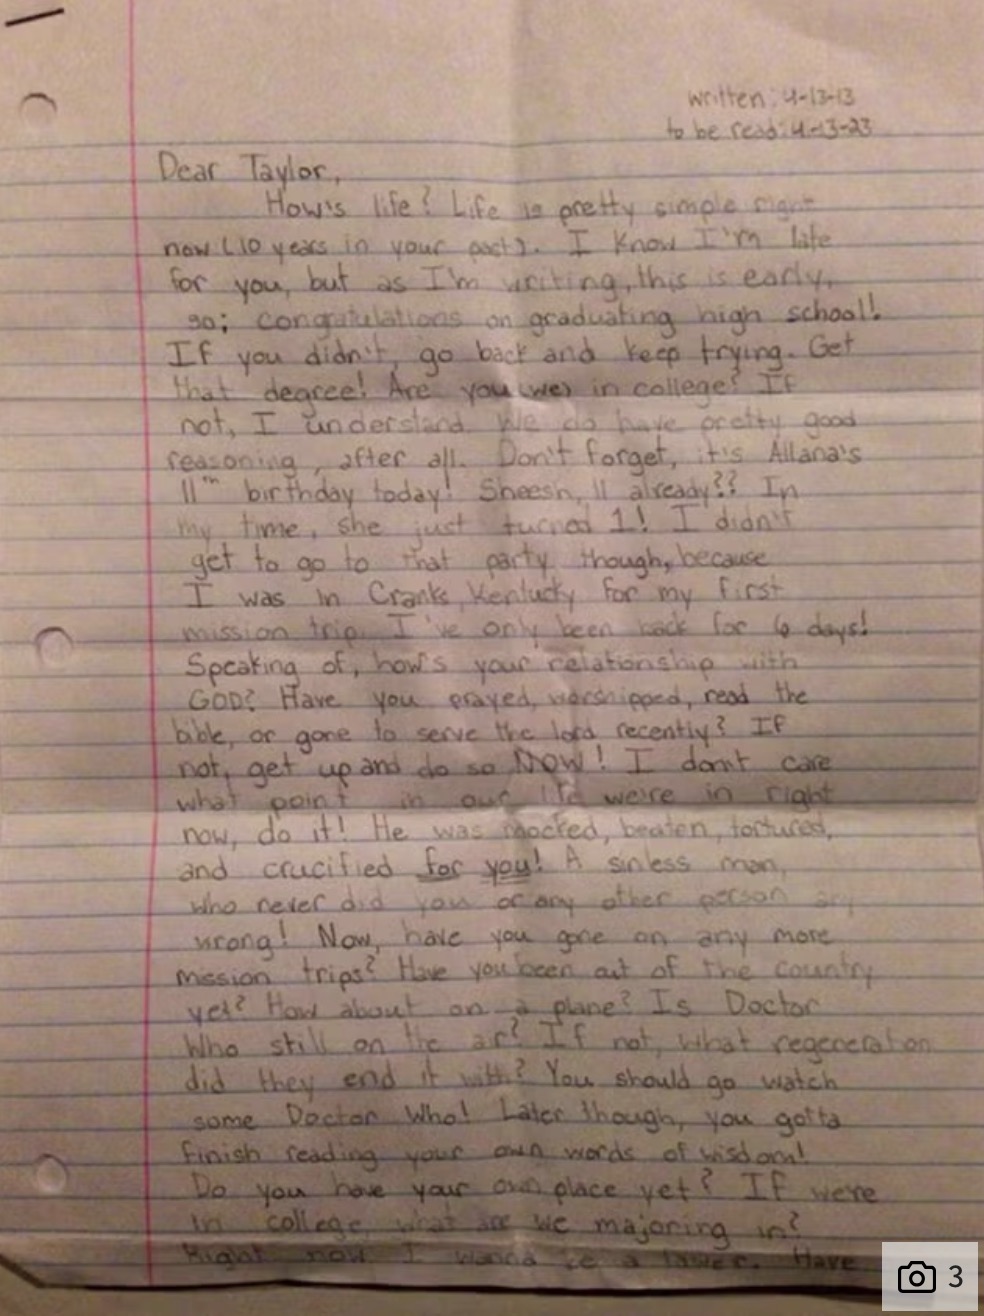 written: 4-13-13
to be read: 4-13-23
Dear Taylor,
How's life? Life is pretty simple right
now (10 years in your past). I know I'm late
for you, but as I'm writing, this is early,
so; congratulations on graduating high school!
If you didn't, go back and keep trying. Get
that degree! Are you (we) in college? If
not, I understand. We do have pretty good
reasoning, after all. Don't forget, it's Allana's
11th birthday today! Sheesh, 11 already?? In
my time, she just turned 1! I didn't
get to go to that party though, because
I was in Cranks, Kentucky for my first
mission trip. I've only been back for 6 days!
Speaking of, how's your relationship with
GOD? Have you prayed, worshipped, read the
bible, or gone to serve the lord recently? If
not, get up and do so NOW! I don't care
what point in our life we're in right
now, do it! He was mocked, beaten, tortured,
and crucified for you! A sinless man,
who never did you or any other person any
wrong! Now, have you gone on any more
mission trips? Have you been out of the country
yet? How about on a plane? Is Doctor
Who still on the air? If not, what regeneration
did they end it with? You should go watch
some Doctor Who! Later though, you gotta
finish reading your own words of wisdom!
Do you have your own place yet? If we're
in college, what are we majoring in?
Right now I wanna be a lawer. Have
3